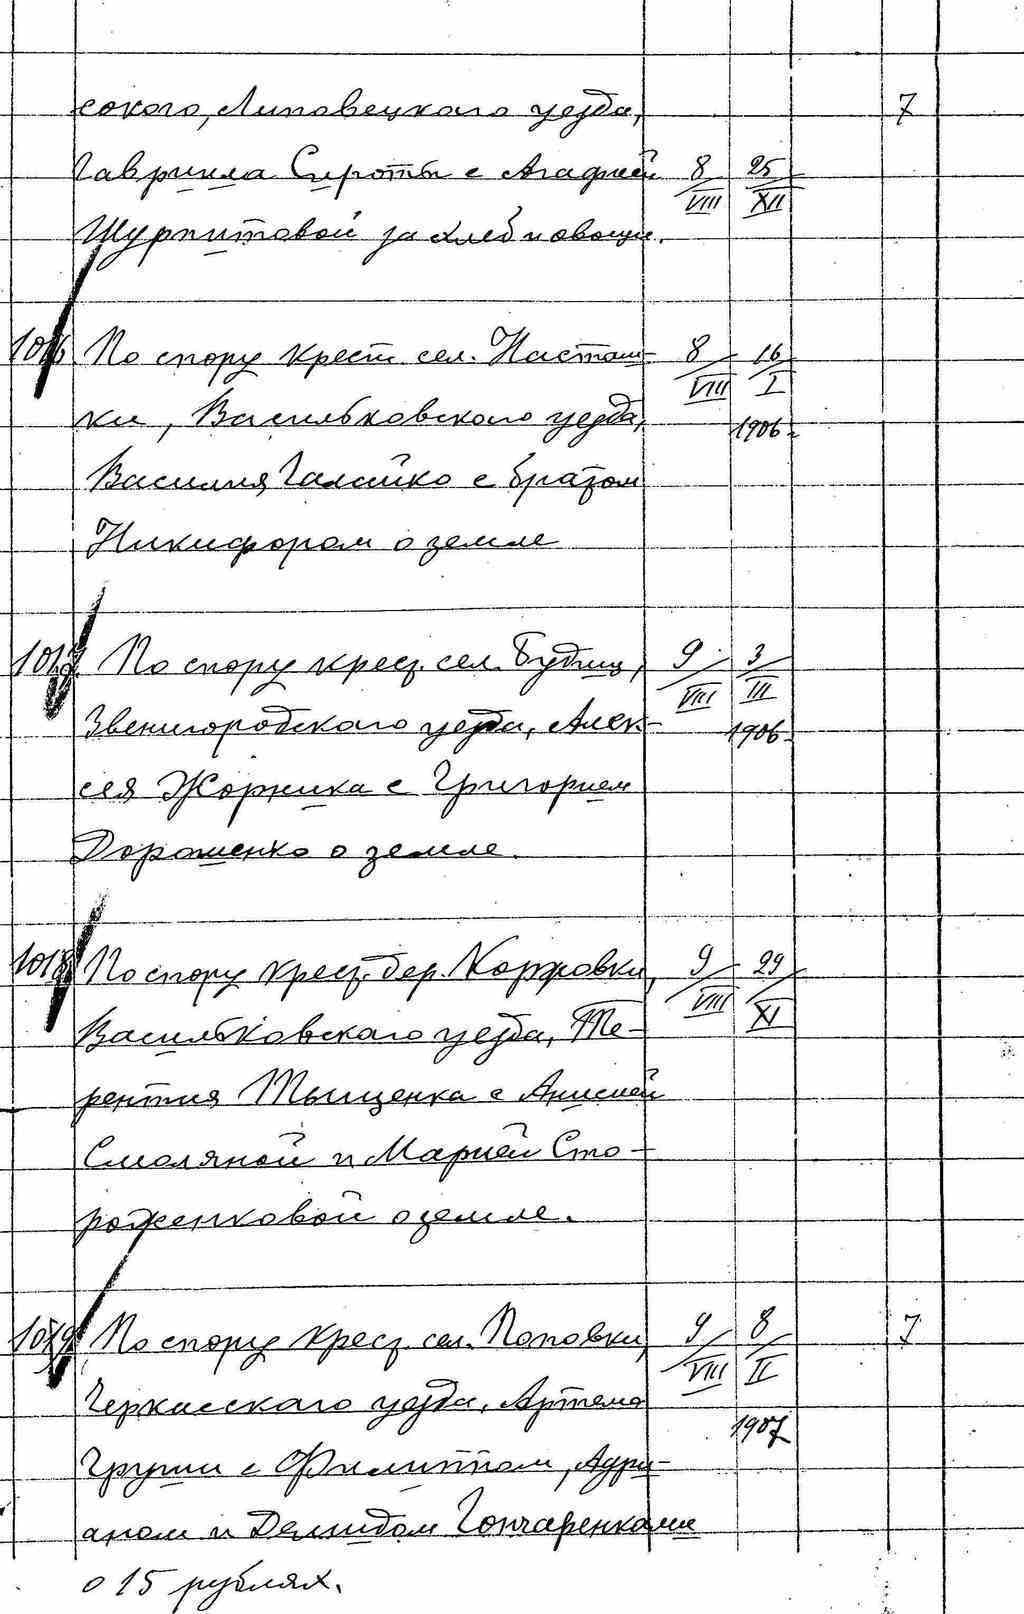 сокого, Липовецкого уезда, 7
Гаврила Сироты с Агафией 8/VIII 25/XII
Шурпитовой за хлеб и овощи.
1016 По спору крест. сел. Насташ- 8/VIII 16/I
ки, Васильковского уезда, 1906 г.
Василия Галайко с братом
Никифором о земле
1017 По спору крест. сел. Будищ, 9/VIII 3/III
Звенигородского уезда, Алек- 1906
сея Жорника с Григорием
Дорошенко о земле.
1018 По спору крест. дер. 9/VIII 29/XI
Васильковского уезда, Те-
рентия Тыщенка с Анисией
Смоляной и Марией Сто-
роженковой о земле.
1019 По спору крест. сел. Поповки, 9/VIII 8/II 7
Черкасского уезда, Артема 1907
с Филиппом, Адри-
аном и Демидом Гончаренками
о 15 рублях.